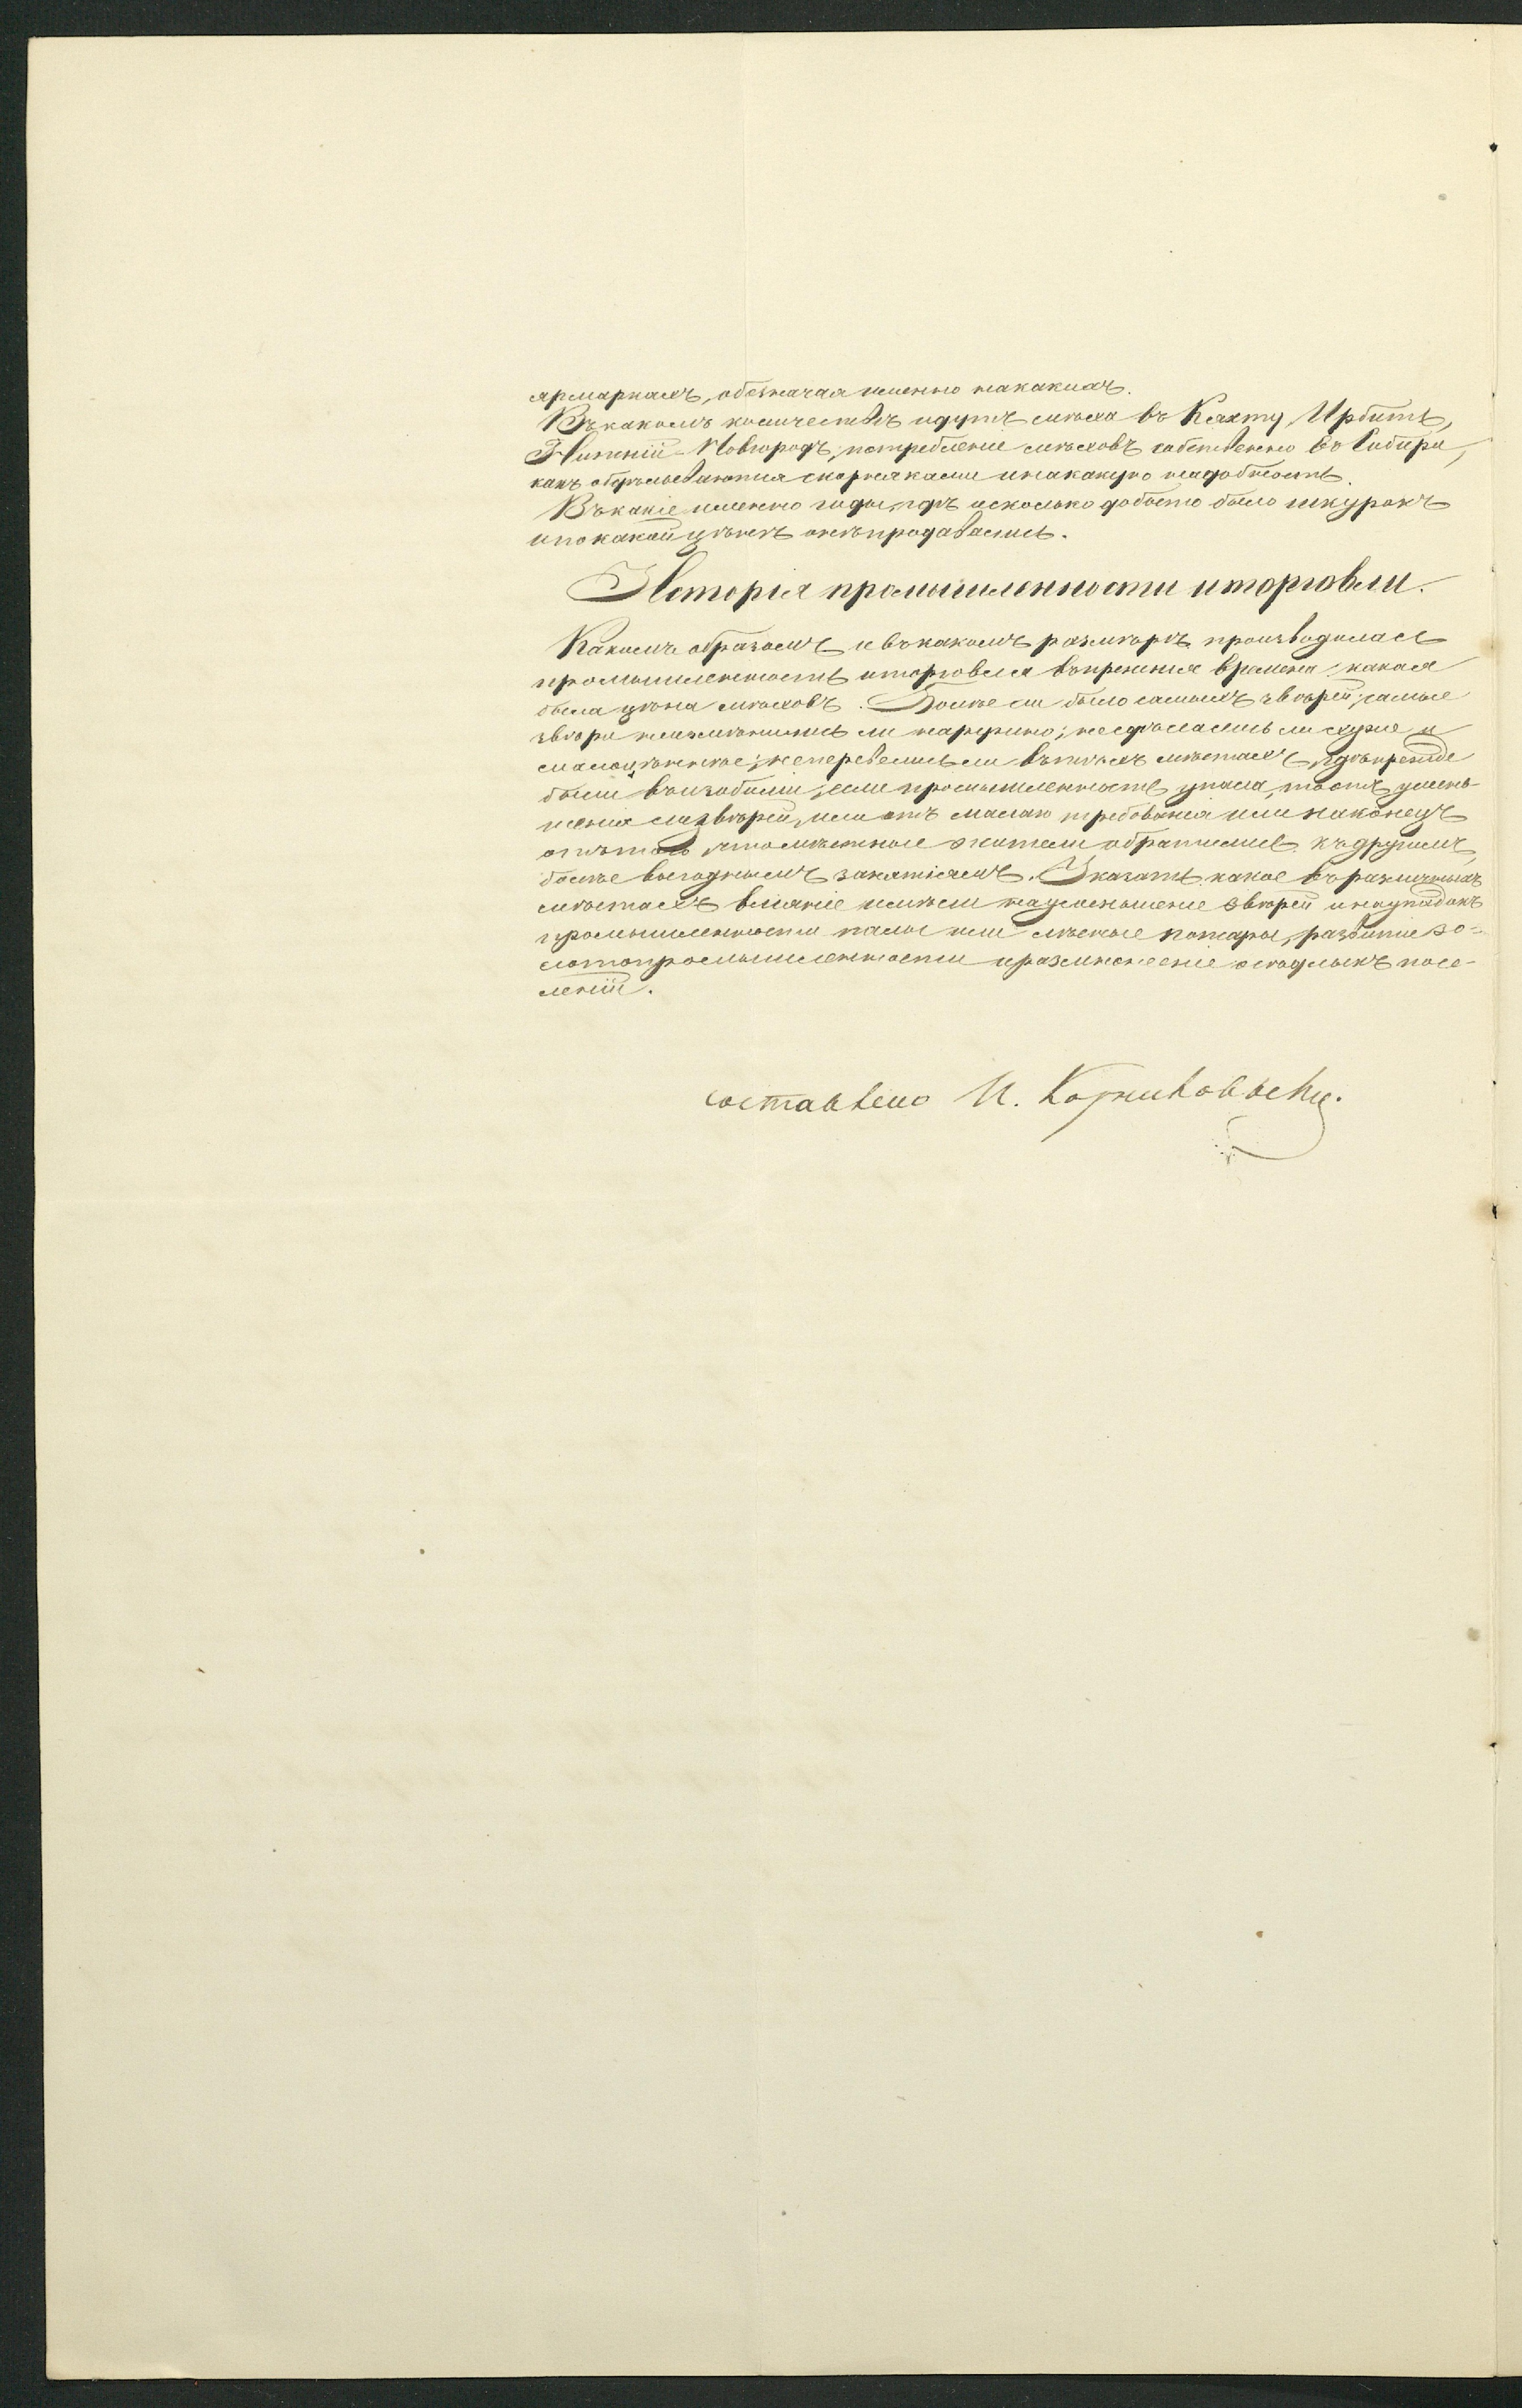 ярмаркамъ, обозначая именно накакихъ.
Въкакомъ количествѣ идутъ мѣха въ Кяхту, Ирбитъ,
Нижній-Новгородъ; потребленіе мѣховъ собственно въ Сибири,
какъ обдѣлываются скорняками инакакую надобность.
Въкакіе именно годы, гдѣ исколько добыто было шкурокъ
ипокакой цѣнѣ онѣпродавались.
Исторія промышленности иторговли.
Какимъ образомъ и въкакомъ размѣрѣ производилась
промышленность иторговля впрежнія времена; какая
была цѣна мѣховъ. Болѣе ли было самыхъ звѣрей; самые
звѣри неизмѣнились ли наружно; несдѣлались ли хуже и
малоцѣннѣе; неперевелись ли вътѣхъ мѣстахъ, гдѣпрежде
были въизобиліи; если промышленность упала, тоотъ умень-
шенія лизвѣрей, или отъ малаго требованія или наконецъ
оттого чтомѣстные жители обратились къдругимъ,
болѣе выгоднымъ занятіямъ. Указать какое въразличныхъ
мѣстахъ вліяніе имѣли науменьшеніе звѣрей инаупадокъ
промышленности палы или лѣсные пожары, развитіе зо-
лотопромышленности иразмноженіе осѣдлыхъ посе-
леній.
составлено И.